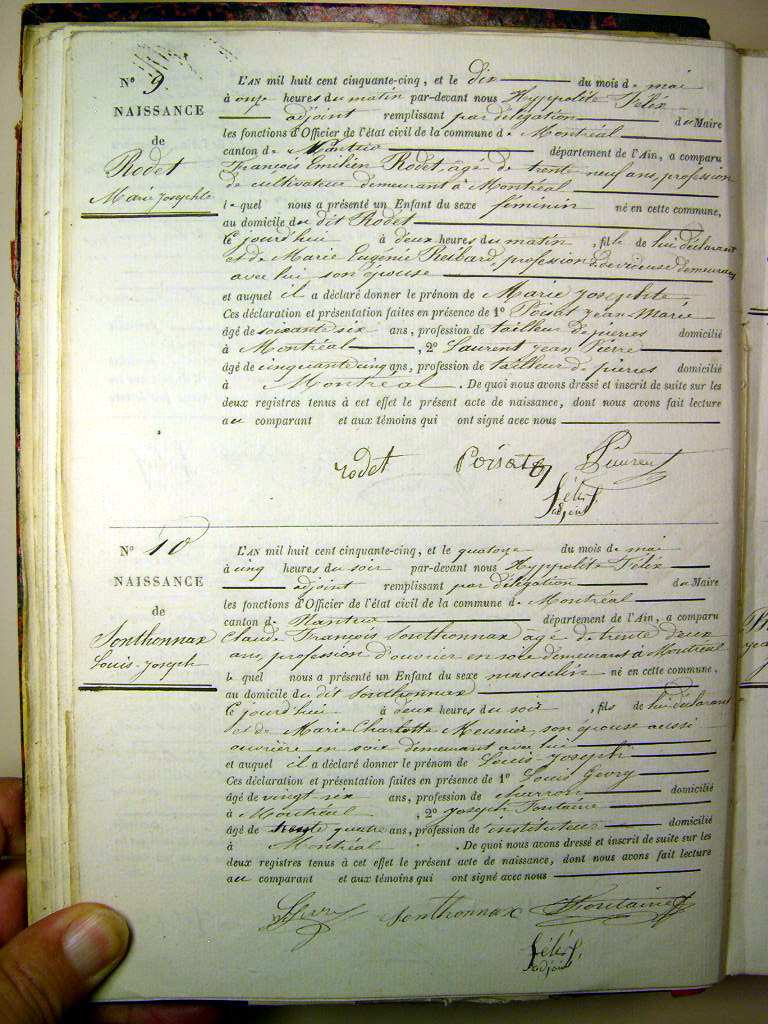 N° 9
NAISSANCE
de
Rodet
Marie Josephte
L'AN mil huit cent cinquante-cinq, et le dix du mois de mai
à onze heures du matin par-devant nous Hyppolite Félix
adjoint remplissant par délégation du Maire
les fonctions d'Officier de l'état civil de la commune de Montréal
canton de Nantua département de l'Ain, a comparu
François Emilien Rodet, âgé de trente neuf ans, profession
de cultivateur demeurant à Montréal
lequel nous a présenté un Enfant du sexe féminin né en cette commune,
au domicile du dit Rodet
ce jourd'hui à deux heures du matin, fille de lui déclarant
et de Marie Eugénie profession demeurant
avec lui son épouse
et auquel il a déclaré donner le prénom de Marie Josephte
Ces déclaration et présentation faites en présence de 1° Poisat Jean Marie
âgé de soixante six ans, profession de tailleur de pierres domicilié
à Montréal, 2° Laurent Jean Pierre
âgé de cinquante cinq ans, profession de tailleur de pierres domicilié
à Montréal. De quoi nous avons dressé et inscrit de suite sur les
deux registres tenus à cet effet le présent acte de naissance, dont nous avons fait lecture
au comparant et aux témoins qui ont signé avec nous
rodet Poisat Laurent
Félix
adjoint
N° 10
NAISSANCE
de
Sonthonnax
Louis-Joseph
L'AN mil huit cent cinquante-cinq, et le quatorze du mois de mai
à cinq heures du soir par-devant nous Hyppolite Félix
adjoint remplissant par délégation du Maire
les fonctions d'Officier de l'état civil de la commune de Montréal
canton de Nantua département de l'Ain, a comparu
Claude François Sonthonnax âgé de trente deux
ans, profession d'ouvrier en soie demeurant à Montréal
lequel nous a présenté un Enfant du sexe masculin né en cette commune,
au domicile du dit Sonthonnax
ce jourd'hui à deux heures du soir, fils de lui déclarant
et de Marie Charlotte Meunier, son épouse aussi
ouvrière en soie demeurant avec lui
et auquel il a déclaré donner le prénom de Louis Joseph
Ces déclaration et présentation faites en présence de 1° Louis
âgé de vingt six ans, profession de charron domicilié
à Montréal, 2° Joseph Fontaine
âgé de trente quatre ans, profession de instituteur domicilié
à Montréal. De quoi nous avons dressé et inscrit de suite sur les
deux registres tenus à cet effet le présent acte de naissance, dont nous avons fait lecture
au comparant et aux témoins qui ont signé avec nous
Sonthonnax Fontaine
Félix
adjoint